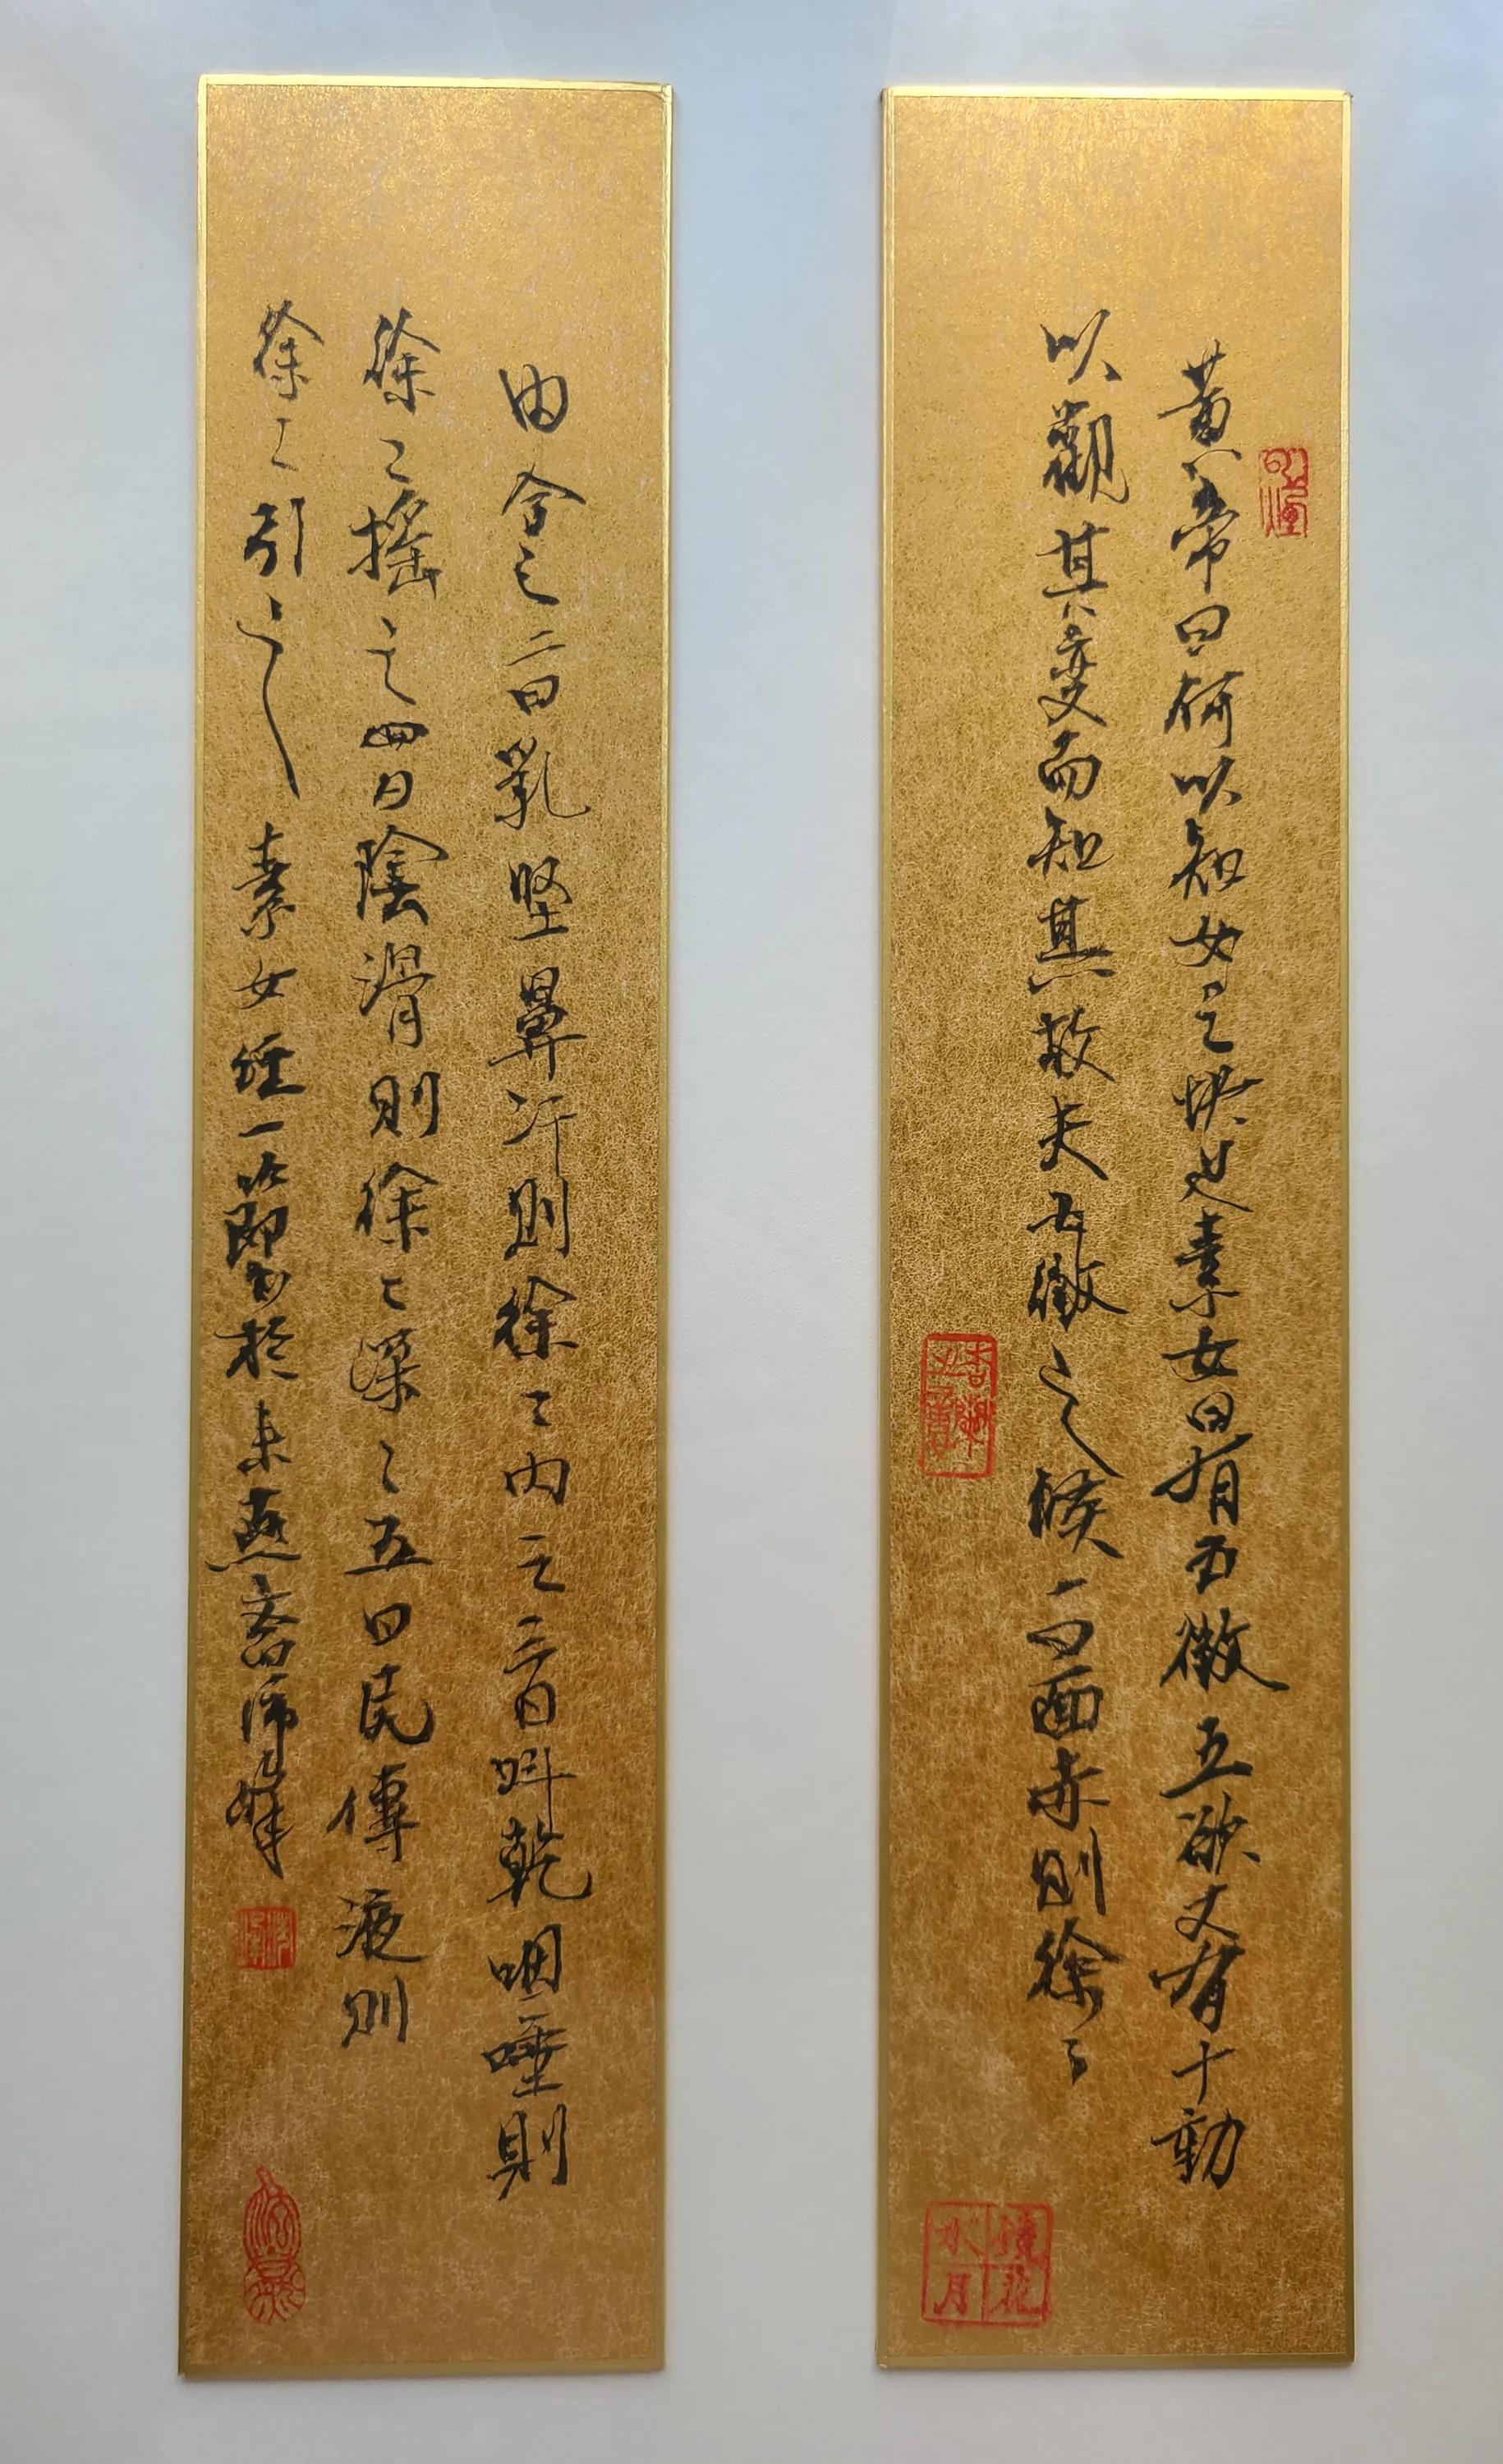 黄帝曰何以知女之快是素女曰有五徵五欲又有十動
以觀其變而知其故夫五徵之候一曰面赤則徐〻
由合之二曰乳堅鼻汗則徐〻内之三曰嗌乾咽唾則
徐〻搖之四曰陰滑則徐〻深〻五曰尻傳液則
徐〻引之 素女經一節書於未燕齋
鏡花水月